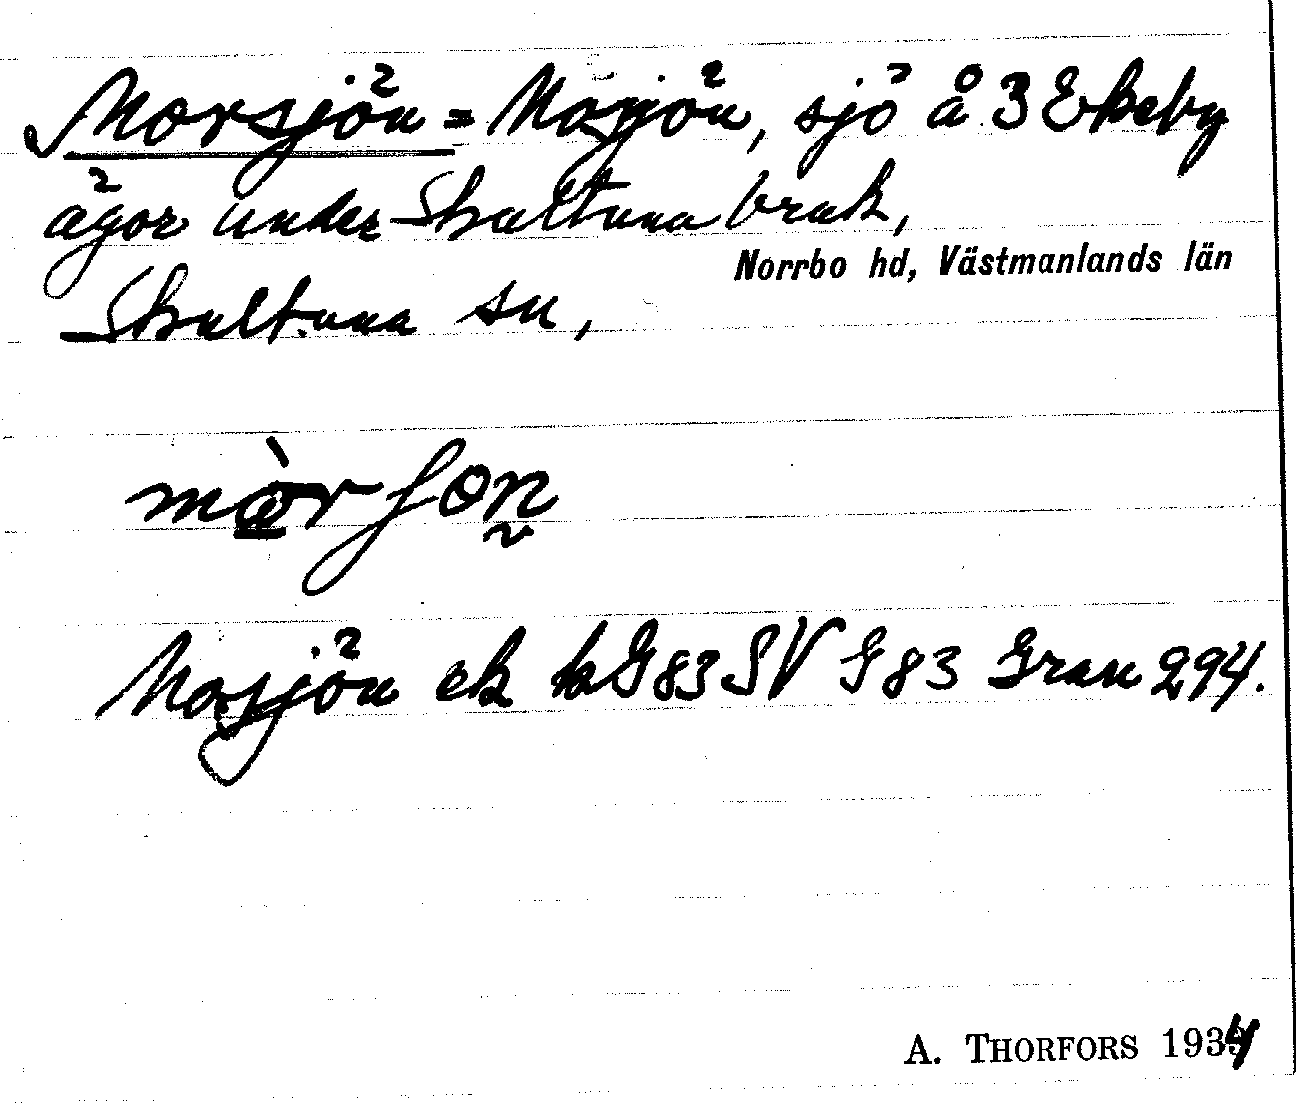 Morsjön = Mosjön, sjö å 3 Ekeby
ägor under Skultuna bruk,
Norrbo hd, Västmanlands län
Skultuna sn,
mòrʃon
Mosjön ek bl G 83 SV G 83 Gran 294.
A. THORFORS 1934